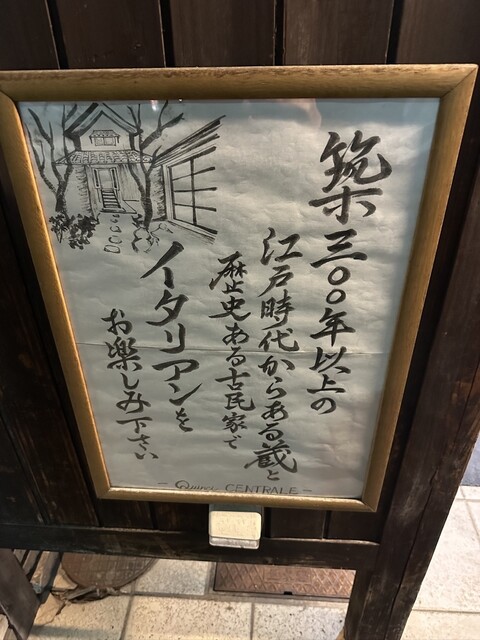 築三〇〇年以上の
江戸時代からある蔵と
歴史ある古民家で
イタリアンを
お楽しみ下さい
CENTRALE